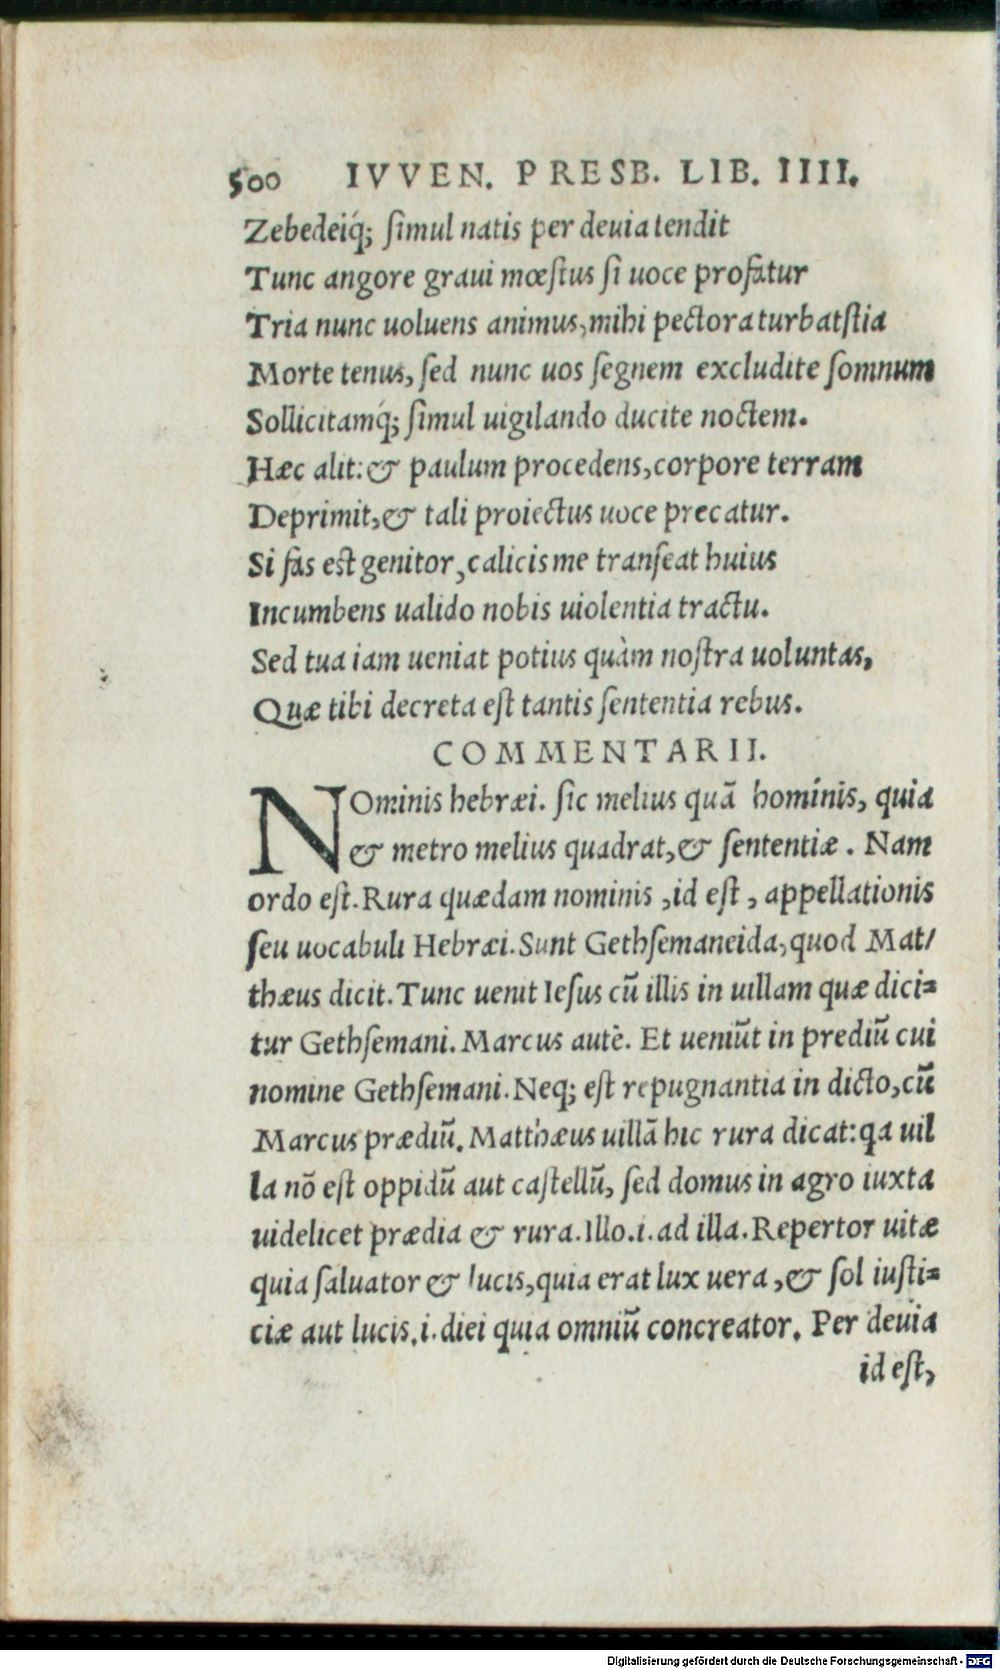 500 IVVEN. PRESB. LIB. IIII.
Zebedeiq́; ſimul natis per deuia tendit
Tunc angore graui mœſtus ſi uoce profatur
Tria nunc uoluens animus, mihi pectora turbatſtia
Morte tenus, ſed nunc uos ſegnem excludite ſomnum
Sollicitamq́; ſimul uigilando ducite noctem.
Hæc alit: & paulum procedens, corpore terram
Deprimit, & tali proiectus uoce precatur.
Si fas eſt genitor, calicis me tranſeat huius
Incumbens ualido nobis uiolentia tractu.
Sed tua iam ueniat potius quàm noſtra uoluntas,
Quæ tibi decreta eſt tantis ſententia rebus.
COMMENTARII.
NOminis hebræi. ſic melius quã hominis, quia
& metro melius quadrat, & ſententiæ. Nam
ordo eſt. Rura quædam nominis, id eſt, appellationis
ſeu uocabuli Hebræi. Sunt Gethſemaneida, quod Mat/
thæus dicit. Tunc uenit Ieſus cũ illis in uillam quæ dici=
tur Gethſemani. Marcus autẽ. Et ueniũt in prediũ cui
nomine Gethſemani. Neq; eſt repugnantia in dicto, cũ
Marcus prædiũ. Matthæus uillã hic rura dicat: qa uil
la nõ eſt oppidũ aut caſtellũ, ſed domus in agro iuxta
uidelicet prædia & rura. Illo. i. ad illa. Repertor uitæ
quia ſaluator & lucis, quia erat lux uera, & ſol iuſti=
ciæ aut lucis. i. diei quia omniũ concreator. Per deuia
id eſt,
Digitalisierung gefördert durch die Deutsche Forschungsgemeinschaft - DFG